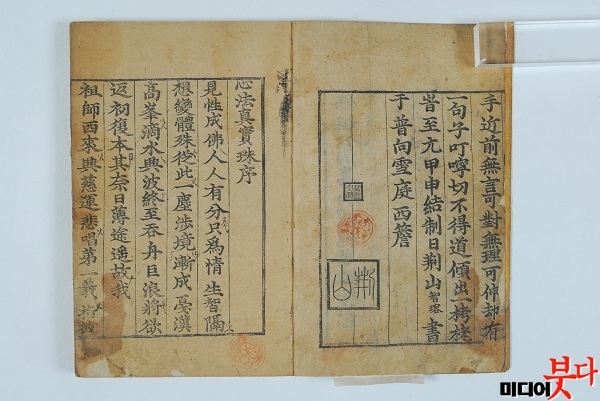 手近前無言可對無理可伸却有
一句子叮嚀切不得道傾出一栲栳
旹至元甲申結制日荆山智璿書
于普向雪庭西簷
荆山
心法真寶珠序
見性成佛人人有分只爲情生智隔
想變體殊從此一塵涉境漸成憂漢
高峯滴水興波終至吞舟巨浪將欲
返初復本其奈日薄途遙故我
祖師西來興慈運悲唱第一義
미디어붓다